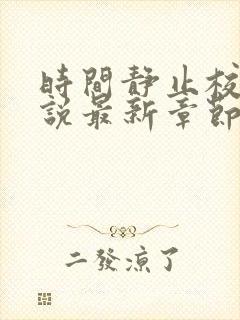 時間靜止校
說最新章節
二發涼了